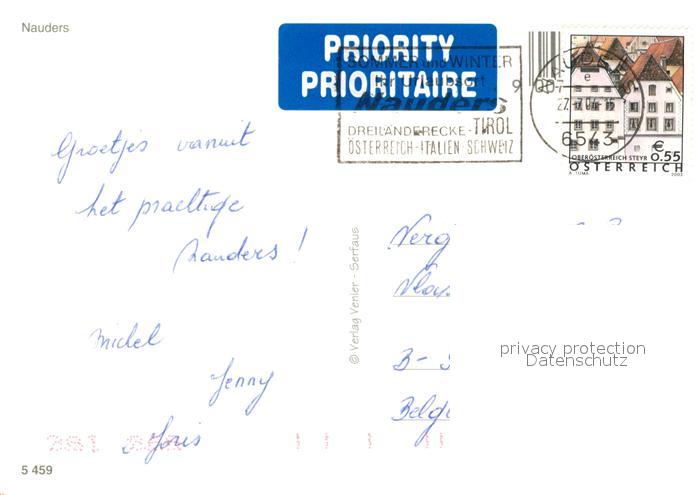 Nauders
PRIORITY
PRIORITAIRE
SOMMER und WINTER
Ihr Urlaubsort
Nauders
TIROL
DREILÄNDERECKE
ÖSTERREICH-ITALIEN-SCHWEIZ
27.7.04
6543
€
0.55
OBERÖSTERREICH STEYR
A. TUMA 2002
ÖSTERREICH
Groetjes vanuit
het prachtige
Nauders !
Michel
Jenny
Joris
© Verlag Venier - Serfaus
Verg
B-
Belgi
privacy protection
Datenschutz
5 459